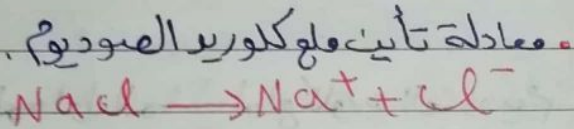 معادلة تأين ملح كلوريد الصوديوم.
NaCl → Na⁺ + Cl⁻